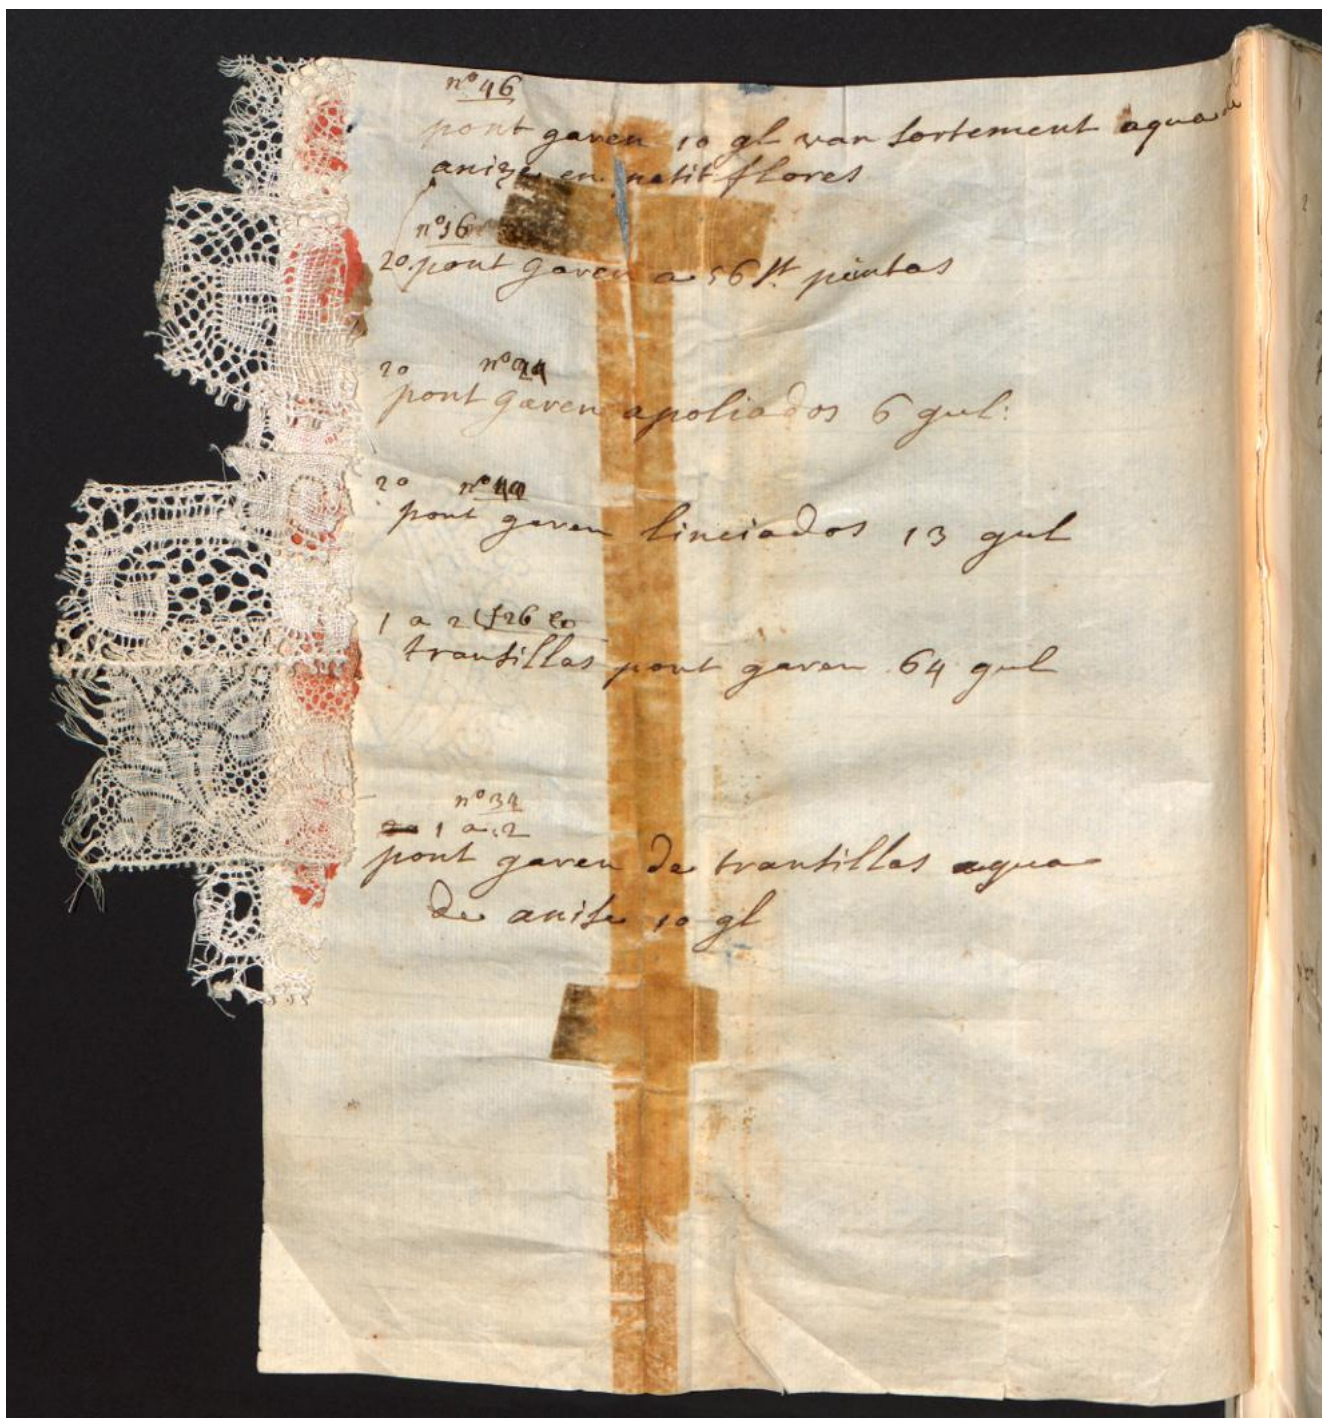 nº 46
pont gaven 10 gl van sortement agua de
anize en petit flores
nº 16
20 pont gaven a 56 st pintas
20 nº
pont gaven apoliados 6 gul:
20 nº
pont gaven linciados 13 gul
1 a 2
transillas pont gaven 64 gul
nº 34
1 a 2
pont gaven de transillas agua
de anise 10 gl